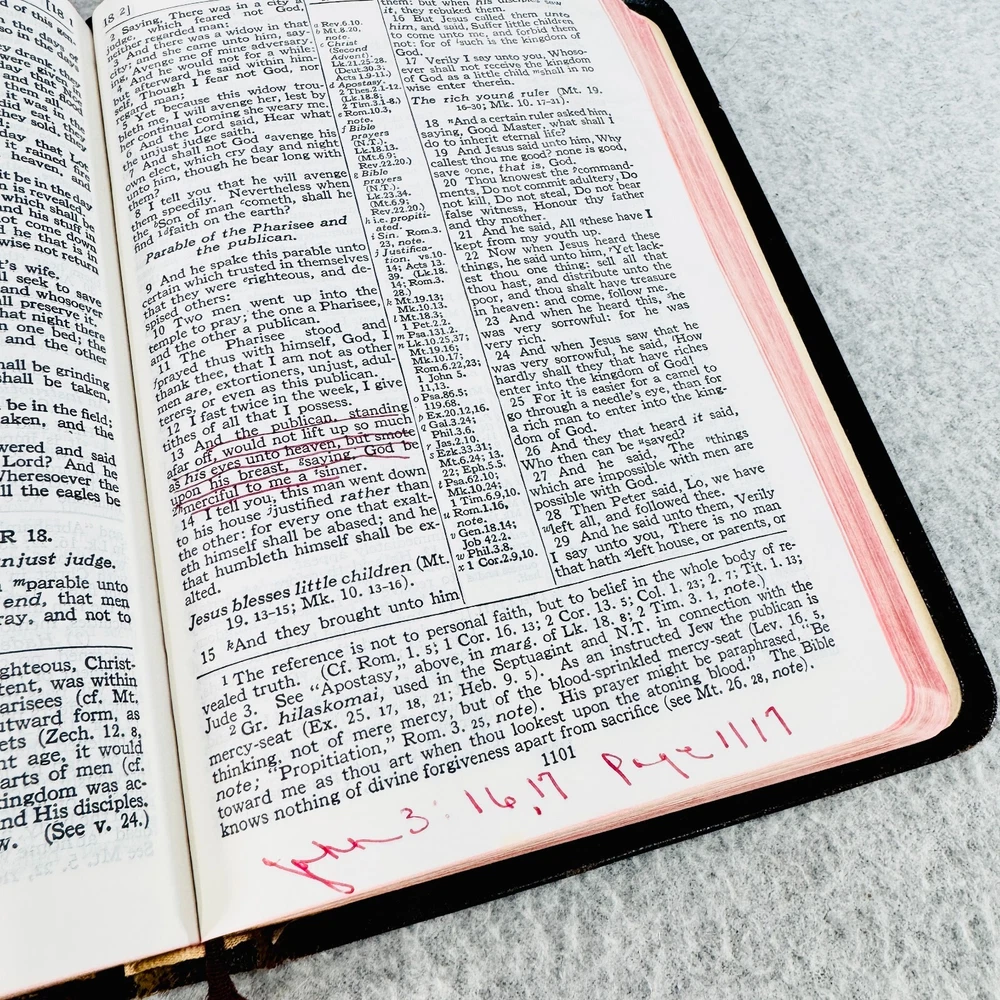 [18 1
d of this
so in the
the days of
ey drank, they
ere given
day that
nd the flood
it was in the
did eat, they
sold, they
day that Lot
it rained fire
heaven, and
it be in the day
n is revealed.
which shall be
nd his stuff in
not come down
d he that is in
wise not return
t's wife.
ll seek to save
and whosoever
all preserve it.
hat night there
n one bed; the
and the other
hall be grinding
shall be taken,
be in the field;
aken, and the
wered and said
Lord? And he
Wheresoever the
ll the eagles be
R 18.
njust judge.
mparable unto
end, that men
ray, and not to
ghteous, Christ-
tent, was within
arisees (cf. Mt.
utward form, as
ets (Zech. 12. 8,
nt age, it would
arts of men (cf.
ingdom was ac-
nd His disciples.
w. (See v. 24.)
18 2]
2 Saying, There was in a city a
judge, which feared not God,
neither regarded man:
3 And there was a widow in that
city; and she came unto him, say-
ing, Avenge me of mine adversary.
4 And he would not for a while:
but afterward he said within him-
self, Though I fear not God, nor
regard man;
5 Yet because this widow trou-
bleth me, I will avenge her, lest by
her continual coming she weary me.
6 And the Lord said, Hear what
the unjust judge saith.
7 And shall not God eavenge his
own elect, which cry day and night
unto him, though he bear long with
them?
8 I tell you that he will avenge
them speedily. Nevertheless when
the bSon of man ccometh, shall he
find 1dfaith on the earth?
Parable of the Pharisee and
the publican.
9 And he spake this parable unto
certain which trusted in themselves
that they were erighteous, and de-
spised others:
10 Two men went up into the
temple to pray; the one a Pharisee,
and the other a publican.
11 The Pharisee stood and
fprayed thus with himself, God, I
thank thee, that I am not as other
men are, extortioners, unjust, adul-
terers, or even as this publican.
12 I fast twice in the week, I give
tithes of all that I possess.
13 And the publican, standing
afar off, would not lift up so much
as his eyes unto heaven, but smote
upon his breast, gsaying, God be
2hmerciful to me a isinner.
14 I tell you, this man went down
to his house jjustified rather than
the other: for every one that exalt-
eth himself shall be abased; and he
that humbleth himself shall be ex-
alted.
Jesus blesses little children (Mt.
19. 13-15; Mk. 10. 13-16).
15 kAnd they brought unto him
a Rev.6.10.
b Mt.8.20,
note.
c Christ
(Second
Advent).
Lk.21.25-28.
(Deut.30.3;
Acts 1.9-11.)
d Apostasy.
2 Thes.2.1-12.
(Lk.18.8;
2 Tim.3.1-8.)
e Rom.10.3,
note.
f Bible
prayers
(N.T.).
Lk.18.13.
(Mt.6.9;
Rev.22.20.)
g Bible
prayers
(N.T.).
Lk.23.34.
(Mt.6.9;
Rev.22.20.)
h i.e. propiti-
ated.
i Sin. Rom.3.
23, note.
j Justifica-
tion. vs.10-
14; Acts 13.
39. (Lk.18.
14; Rom.3.
28.)
k Mt.19.13;
Mk.10.13.
l Mt.18.3;
1 Pet.2.2.
m Psa.131.2.
n Lk.10.25,37;
Mt.19.16;
Mk.10.17;
Rom.6.22,23;
1 John 5.
11,13.
o Psa.86.5;
119.68.
p Ex.20.12,16.
q Gal.3.24;
Phil.3.6.
r Jas.2.10.
s Ezk.33.31;
Mt.6.24; 13.
22; Eph.5.5.
t Psa.62.10;
Mk.10.24;
1 Tim.6.9,10.
u Rom.1.16,
note.
v Gen.18.14;
Job 42.2.
w Phil.3.8.
x 1 Cor.2.9,10.
them: but when his disciples saw
it, they rebuked them.
16 But Jesus called them unto
him, and said, Suffer little children
to come unto me, and forbid them
not: for of lsuch is the kingdom of
God.
17 Verily I say unto you, Whoso-
ever shall not receive the kingdom
of God as a little child mshall in no
wise enter therein.
The rich young ruler (Mt. 19.
16-30; Mk. 10. 17-31).
18 nAnd a certain ruler asked him,
saying, Good Master, what shall I
do to inherit eternal life?
19 And Jesus said unto him, Why
callest thou me good? none is good,
save oone, that is, God.
20 Thou knowest the pcommand-
ments, Do not commit adultery, Do
not kill, Do not steal, Do not bear
false witness, Honour thy father
and thy mother.
21 And he said, All qthese have I
kept from my youth up.
22 Now when Jesus heard these
things, he said unto him, rYet lack-
est thou one thing: sell all that
thou hast, and distribute unto the
poor, and thou shalt have treasure
in heaven: and come, follow me.
23 And when he heard this, she
was very sorrowful: for he was
very rich.
24 And when Jesus saw that he
was very sorrowful, he said, tHow
hardly shall they that have riches
enter into the kingdom of God!
25 For it is easier for a camel to
go through a needle's eye, than for
a rich man to enter into the king-
dom of God.
26 And they that heard it said,
Who then can be usaved?
27 And he said, The vthings
which are impossible with men are
possible with God.
28 Then Peter said, Lo, we have
wleft all, and followed thee.
29 And he said unto them, Verily
I say unto you, There is no man
that hath xleft house, or parents, or
1 The reference is not to personal faith, but to belief in the whole body of re-
vealed truth. (Cf. Rom. 1. 5; 1 Cor. 16. 13; 2 Cor. 13. 5; Col. 1. 23; 2. 7; Tit. 1. 13;
Jude 3. See "Apostasy," above, in marg. of Lk. 18. 8; 2 Tim. 3. 1, note.)
2 Gr. hilaskomai, used in the Septuagint and N.T. in connection with the
mercy-seat (Ex. 25. 17, 18, 21; Heb. 9. 5). As an instructed Jew the publican is
thinking, not of mere mercy, but of the blood-sprinkled mercy-seat (Lev. 16. 5,
note; "Propitiation," Rom. 3. 25, note). His prayer might be paraphrased, "Be
toward me as thou art when thou lookest upon the atoning blood." The Bible
knows nothing of divine forgiveness apart from sacrifice (see Mt. 26. 28, note).
1101
John 3: 16,17 Page 1117